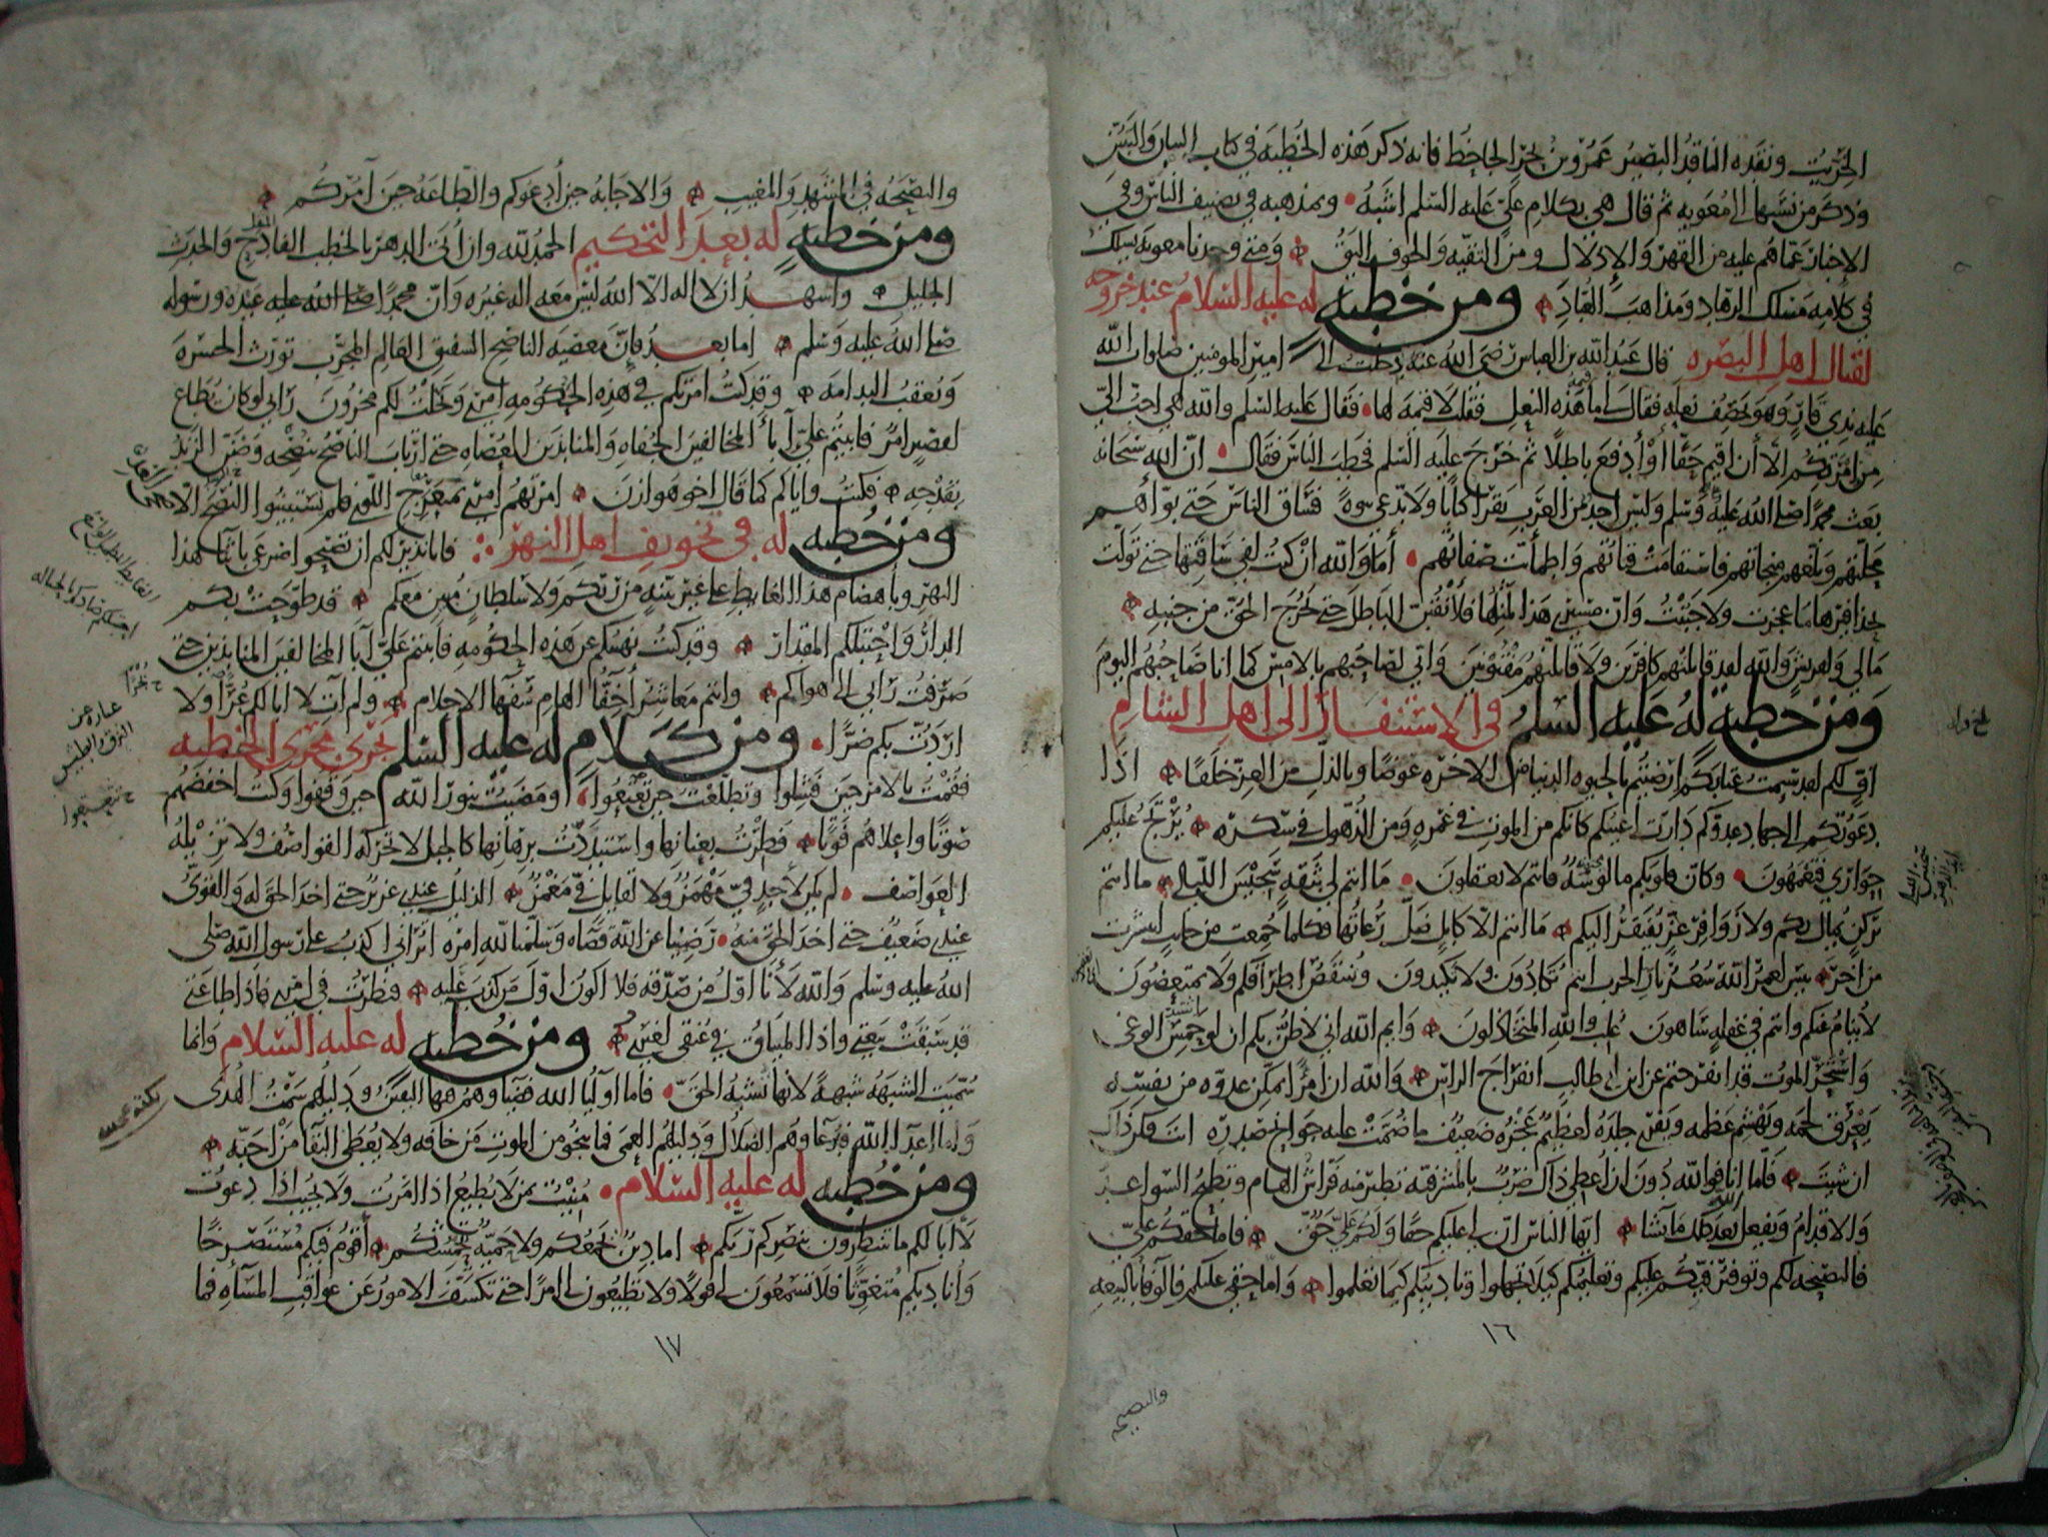 الخريت ونقده الناقد البصير عمرو بن بحر الجاحظ فانه ذكر هذه الخطبه في كتاب البيان والتبين
وذكر من نسبها الى معويه ثم قال هي بكلام علي عليه السلم اشبه وبمذهبه في تصنيف الناس وفي
الاخبار عما هم عليه من القهر والاذلال ومن التقيه والخوف اليق ومتى وجدنا معويه يسلك
في كلامه مسلك الزهاد ومذاهب العباد ومن خطبه له عليه السلام عند خروجه
لقتال اهل البصره قال عبد الله بن العباس رضي الله عنه دخلت الى امير المومنين صلوات الله
عليه بذي قار وهو يخصف نعله فقال لي ما قيمة هذه النعل فقلت لا قيمه لها فقال عليه السلم والله لهي احب الي
من امرتكم الا أن اقيم حقا أو أدفع باطلا ثم خرج عليه السلم فخطب الناس فقال ان الله سبحانه
بعث محمدا صلى الله عليه وسلم وليس احد من العرب يقرا كتابا ولا يدعي نبوة فساق الناس حتى بواهم
محلتهم وبلغهم منجاتهم فاستقامت قناتهم واطمأنت صفاتهم أما والله ان كنت لفي ساقتها حتى تولت
بحذافيرها ما عجزت ولا جبنت وان مسيري هذا لمثلها فلأنقبن الباطل حتى يخرج الحق من جنبه
مالي ولقريش والله لقد قاتلتهم كافرين ولاقاتلنهم مفتونين واني لصاحبهم بالامس كما انا صاحبهم اليوم
ومن خطبة له عليه السلم في الاستنفار الى اهل الشام
اف لكم لقد سئمت عتابكم ارضيتم بالحيوه الدنيا من الاخره عوضا وبالذل من العز خلفا اذا
دعوتكم الى جهاد عدوكم دارت اعينكم كانكم من الموت في غمره ومن الذهول في سكره يرتج عليكم
حواري فتعمهون وكان قلوبكم مالوسه فانتم لا تعقلون ما انتم لي بثقه سجيس الليالي ما انتم
بركن يمال بكم ولا زوافر عز يفتقر اليكم ما انتم الا كابل ضل رعاتها فكلما جمعت من جانب انتشرت
من اخر بئس لعمر الله سعر نار الحرب انتم تكادون ولا تكيدون وتنتقص اطرافكم ولا تمتعضون
لا ينام عنكم وانتم في غفله ساهون غلب والله المتخاذلون وايم الله اني لاظن بكم ان لو حمس الوغى
واستحر الموت قد انفرجتم عن ابن ابي طالب انفراج الراس والله ان امرأ يمكن عدوه من نفسه
يعرق لحمه ويهشم عظمه ويفري جلده لعظيم عجزه ضعيف ما ضمت عليه جوانح صدره انت فكن ذاك
ان شئت فاما انا فوالله دون ان أعطي ذاك ضرب بالمشرفيه تطير منه فراش الهام وتطيح السواعد
والاقدام ويفعل الله بعد ذلك ما يشا ايها الناس ان لي عليكم حقا ولكم علي حق فاما حقكم علي
فالنصيحه لكم وتوفير فيئكم عليكم وتعليمكم كيلا تجهلوا وتاديبكم كيما تعلموا واما حقي عليكم فالوفا بالبيعه
١٦
والنصيحه
والنصيحه في المشهد والمغيب والاجابه حين أدعوكم والطاعه حين آمركم
ومن خطبه له بعد التحكيم الحمد لله وان أتى الدهر بالخطب الفادح والحدث
الجليل واشهد ان لا اله الا الله ليس معه اله غيره وان محمدا صلى الله عليه عبده ورسوله
صلى الله عليه وسلم اما بعد فإن معصيه الناصح الشفيق العالم المجرب تورث الحسره
وتعقب الندامه وقد كنت امرتكم في هذه الحكومه امري ونخلت لكم مخزون رايي لو كان يطاع
لقصير امر فابيتم علي إبأ المخالفين الجفاه والمنابذين العصاه حتى ارتاب الناصح بنصحه وضن الزند
بقدحه فكنت واياكم كما قال اخو هوازن امرتهم امري بمنعرج اللوى فلم تستبينوا النصح الا ضحى الغد
ومن خطبه له في تخويف اهل النهر فانا نذير لكم ان تصبحوا صرعى باثنا هذا
النهر وباهضام هذا الغايط على غير بينه من ربكم ولا سلطان مبين معكم قد طوحت بكم
الدار واحتبلكم المقدار وقد كنت نهيتكم عن هذه الحكومه فابيتم علي إبا المخالفين المنابذين حتى
صرفت رايي الى هواكم وانتم معاشر أخفا الهام سفها الاحلام ولم آت لا ابا لكم عرا ولا
اردت بكم ضرا ومن كلام له عليه السلم يجري مجرى الخطبه
فقمت بالامر حين فشلوا وتطلعت حين تعتعوا ومضيت بنور الله حين وقفوا وكنت اخفضهم
صوتا واعلاهم فوتا فطرت بعنانها واستبددت برهانها كالجبل لا تحركه القواصف ولا تزيله
العواصف لم يكن لأحد في مهمز ولا لقايل في مغمز الذليل عندي عزيز حتى اخذ الحق له والقوي
عندي ضعيف حتى اخذ الحق منه رضينا عن الله قضاه وسلمنا لله امره اتراني اكذب على رسول الله صلى
الله عليه وسلم والله لأنا اول من صدقه فلا اكون اول من كذب عليه فنظرت في امري فاذا طاعتي
قد سبقت بيعتي واذا الميثاق في عنقي لغيري ومن خطبه له عليه السلام وانما
سميت الشبهه شبهة لانها تشبه الحق فاما اوليا الله فضياوهم فيها اليقين ودليلهم سمت الهدى
واما اعدا الله فدعاوهم الضلال ودليلهم العمى فما ينجو من الموت من خافه ولا يعطى البقا من احبه
ومن خطبه له عليه السلام منيت بمن لا يطيع اذا امرت ولا يجيب اذا دعوت
لا ابا لكم ما تنتظرون بنصركم ربكم اما دين يجمعكم ولا حميه تحمشكم أقوم فيكم مستصرخا
وأناديكم متغوثا فلا تسمعون لي قولا ولا تطيعون لي امرا حتى تكشف الامور عن عواقب المساه فما
١٧